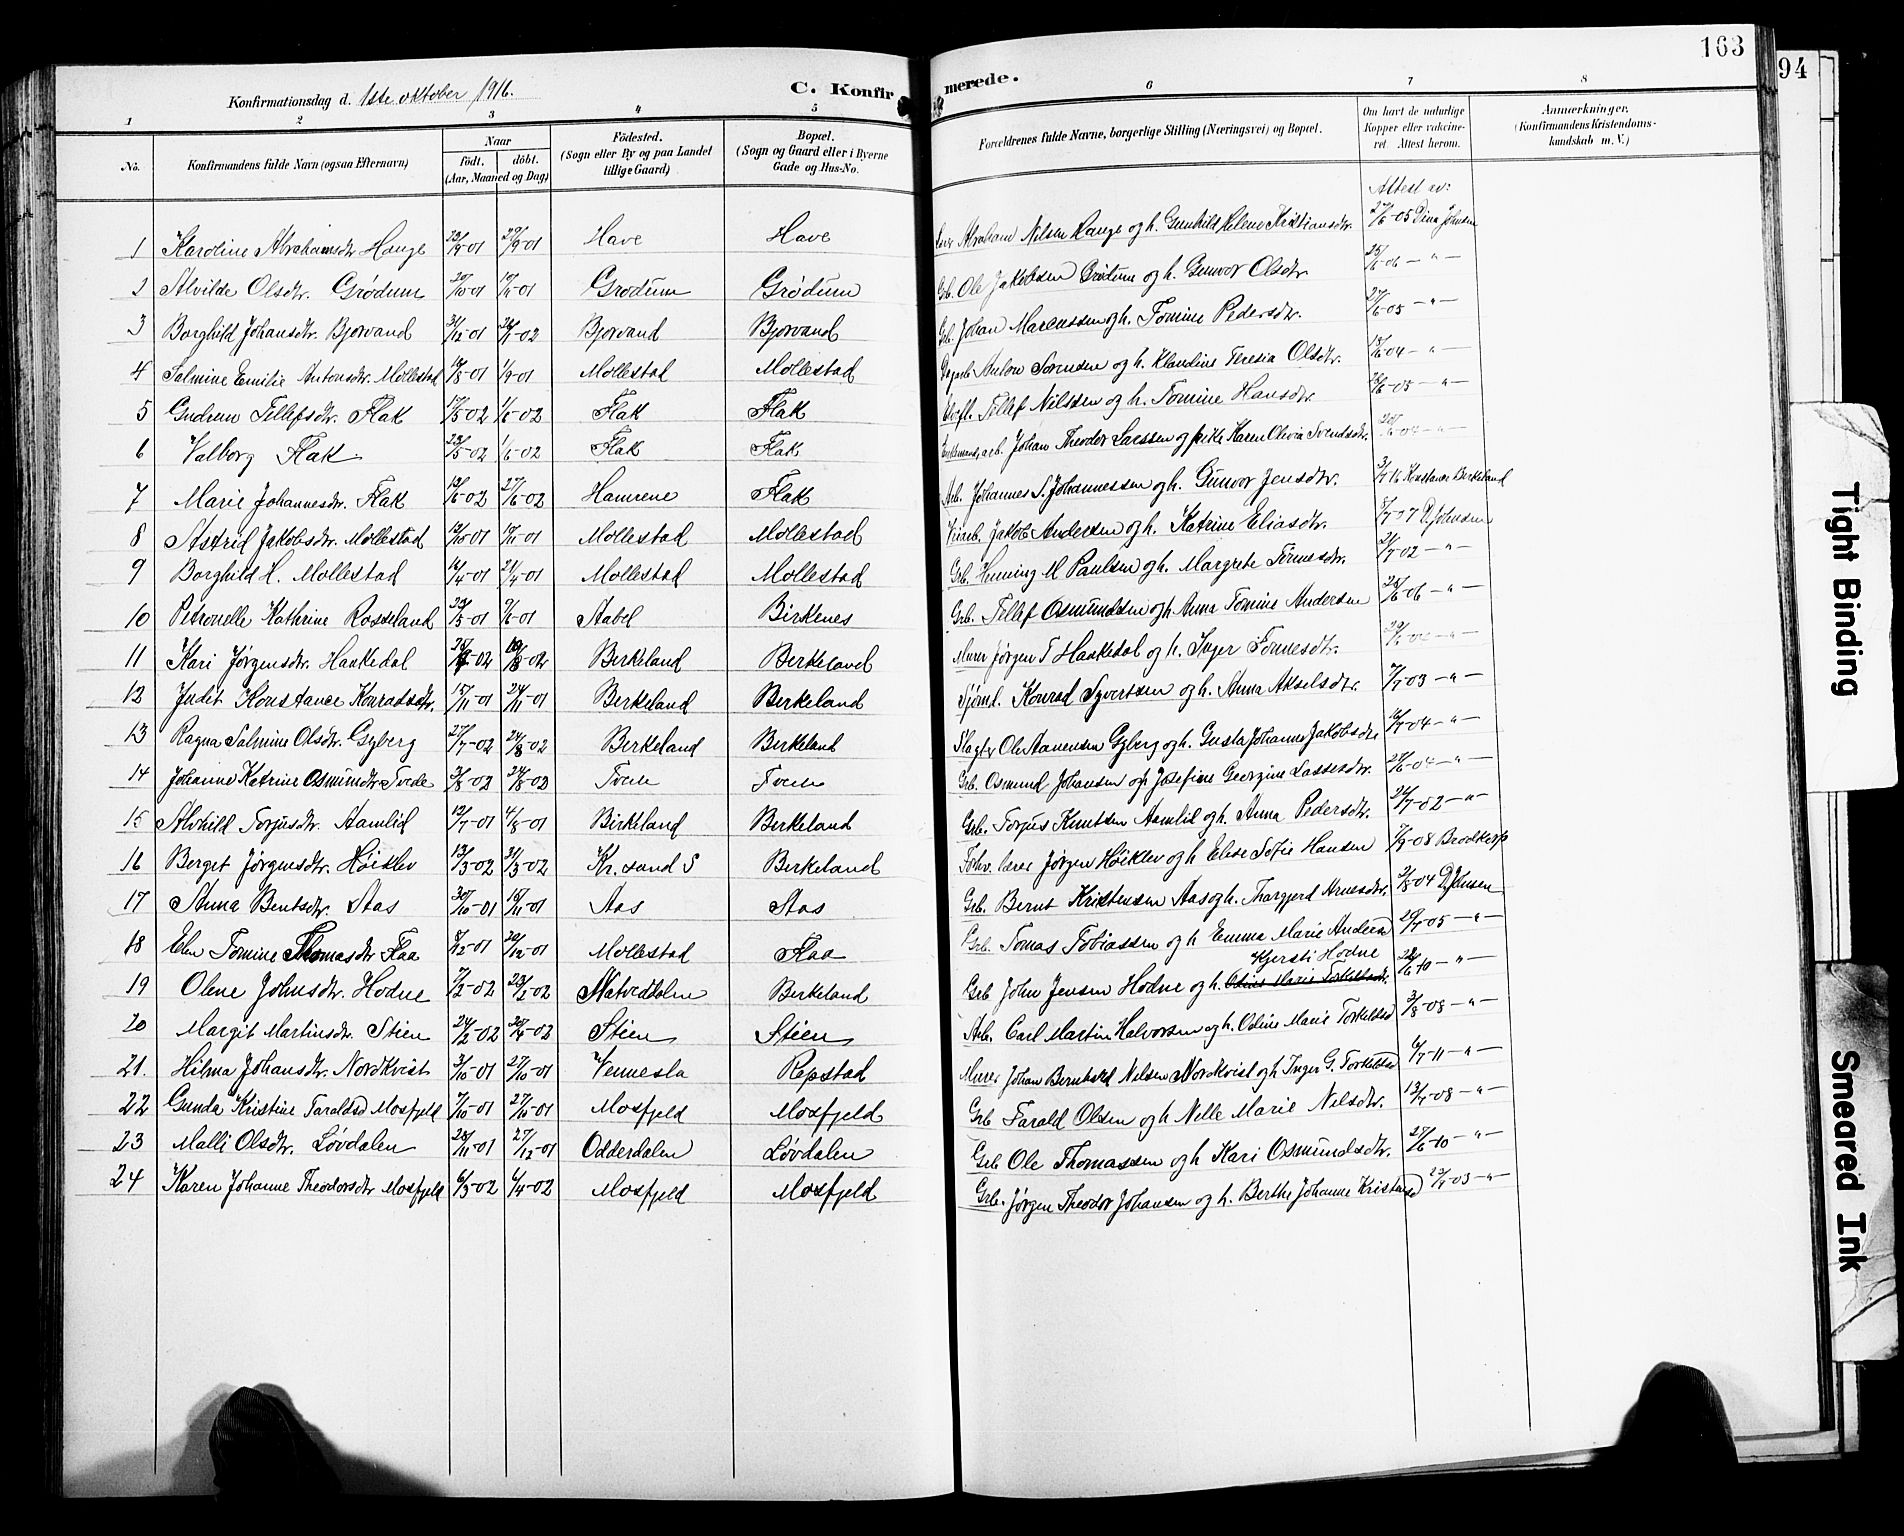 163
94
Konfirmationsdag d. 1ste oktober 1916.
C. Konfirmerede.
1 2 3 4 5 6 7 8
No. Konfirmandens fulde Navn (ogsaa Efternavn) Naar født. døbt. (Aar, Maaned og Dag) Fødested. (Sogn eller By og paa Landet tillige Gaard) Bopæl. (Sogn og Gaard eller i Byerne Gade og Hus-No. Forældrenes fulde Navne, borgerlige Stilling (Næringsvei) og Bopæl. Om havt de naturlige Kopper eller vakcineret. Attest herom. Anmærkninger. (Konfirmandens Kristendomskundskab m. V.)
Attest av:
1 Karoline Abrahamsdtr Hauge 23/9-01 29/9-01 Have Have Abraham Nilsen Hauge og h. Gunhild Helene Kristiansdtr. 27/6-05 Dina Johnsen
2 Alvilde Olsdtr. Grødum 20/10-01 Grødum Grødum Grb. Ole Jakobsen Grødum og h. Gunvor Olsdtr. 25/6-06 — " —
3 Borghild Johansdtr. Bjorvand 31/12-01 Bjorvand Bjorvand Grb. Johan Marenssen og h. Tomine Pedersdtr. 27/6-05 — " —
4 Salmine Emilie Antonsdtr. Mollestad 1/9-01 Mollestad Mollestad Anton Sørensen og h. Klaudine Teresia Olsdtr. — " —
5 Gudrun Tellefsdtr. Flak 17/5-02 1/6-02 Flak Flak Tellef Nilsen og h. Tomine Hansdtr. 26/6-05 — " —
6 Valborg Flak 23/5-02 1/6-02 Flak Flak Johan Theodor Larssen og pike Karen Olivia Svendsdtr. — " —
7 Marie Johannesdtr. Flak 12/6-02 27/6-02 Hamrene Flak Arb. Johannes S. Johannessen og h. Gunvor Jensdtr. 3/7-16 Konstanse Birkeland
8 Astrid Jakobsdtr. Mollestad 12/10-01 17/11-01 Mollestad Mollestad Jakob Andersen og h. Katrine Eliasdtr. 5/7-07 D. Johnsen
9 Borghild H. Mollestad 16/4-01 21/4-01 Mollestad Mollestad Grb. Henning M Paulsen og h. Margrete Terinesdtr. 24/7-02 — " —
10 Petronelle Kathrine Rosseland 23/5-01 9/6-01 Stabel Birkenes Grb. Tellef Osmundsen og h Anna Tomine Andersen 25/6-06 — " —
11 Kari Jørgensdtr. Haakedal Birkeland Birkeland Murer Jørgen T Haakedal og h. Inger Tønnesdtr. — " —
12 Judit Konstance Konradsdtr. 15/11-01 24/11-01 Birkeland Birkeland Sjømd. Konrad Syvertsen og h. Anna Akselsdtr. 7/7-03 — " —
13 Ragna Salmine Olsdtr. Gyberg 27/7-02 24/8-02 Birkeland Birkeland Ole Aanensen Gyberg og h. Gusta Johanne Jakobsdtr 16/7-04 — " —
14 Johanne Katrine Osmundsdtr Tvede 3/8-02 24/8-02 Tvede Tvede Grb. Osmund Johansen og Josefine Georgine Lassesdtr. 27/6-04 — " —
15 Alvhild Torjusdtr. Aamlid 12/7-01 4/8-01 Birkeland Birkeland Grb. Torjus Knutsen Aamlid og h. Anna Pedersdtr. 24/7-02 — " —
16 Berget Jørgensdtr. Høiklev 13/3-02 31/3-02 Kr.sand S Birkeland lærer Jørgen Høiklev og h Elise Sofie Hansen 7/9-08 Brodtkorp
17 Anna Berntsdtr. Aas 30/10-01 18/11-01 Aas Aas Grb. Bernt Kristensen Aas og h. Thargjerd Arnesdtr. 3/8-04 D Johnsen
18 Elen Tomine Thomasdtr Flaa 8/12-01 20/12-01 Mollestad Flaa Grb. Tomas Tobiassen og h Emma Marie Andersd 29/7-05 — " —
Kjersti Hodne
19 Olene Johnsdtr. Hodne 7/2-02 23/2-02 Natvedtolen Birkeland Grb John Jensen Hodne og h. Odine Marie Torkelsdtr. 28/6-10 — " —
20 Margit Martinsdtr. Stien 24/2-02 20/4-02 Stien Stien Arb. Carl Martin Halvorsen og h. Odine Marie Torkelsd 3/8-08 — " —
21. Hilma Johansdtr. Nordkvist 3/10-01 27/10-01 Vennesla Repstad Murer Johan Bernhard Nilsen Nordkvist og h Inger G. Torkelsd 6/7-11 — " —
22 Gunda Kristine Taraldsd Mosfjeld 7/10-01 27/10-01 Mosfjeld Mosfjeld Grb Tarald Olsen og h Nelle Marie Nilsdtr. 13/7-08 — " —
23 Malli Olsdtr. Løvdalen 28/11-01 27/12-01 Odderdalen Løvdalen Grb Ole Thomassen og h Kari Osmundsdtr. 27/6-10 — " —
24 Karen Johanne Theodorsdtr Mosfjeld 6/3-02 6/4-02 Mosfjeld Mosfjeld Grb. Jørgen Theodor Johansen og h. Berthe Johanne Kristensd — " —
Tight Binding
Smeared Ink